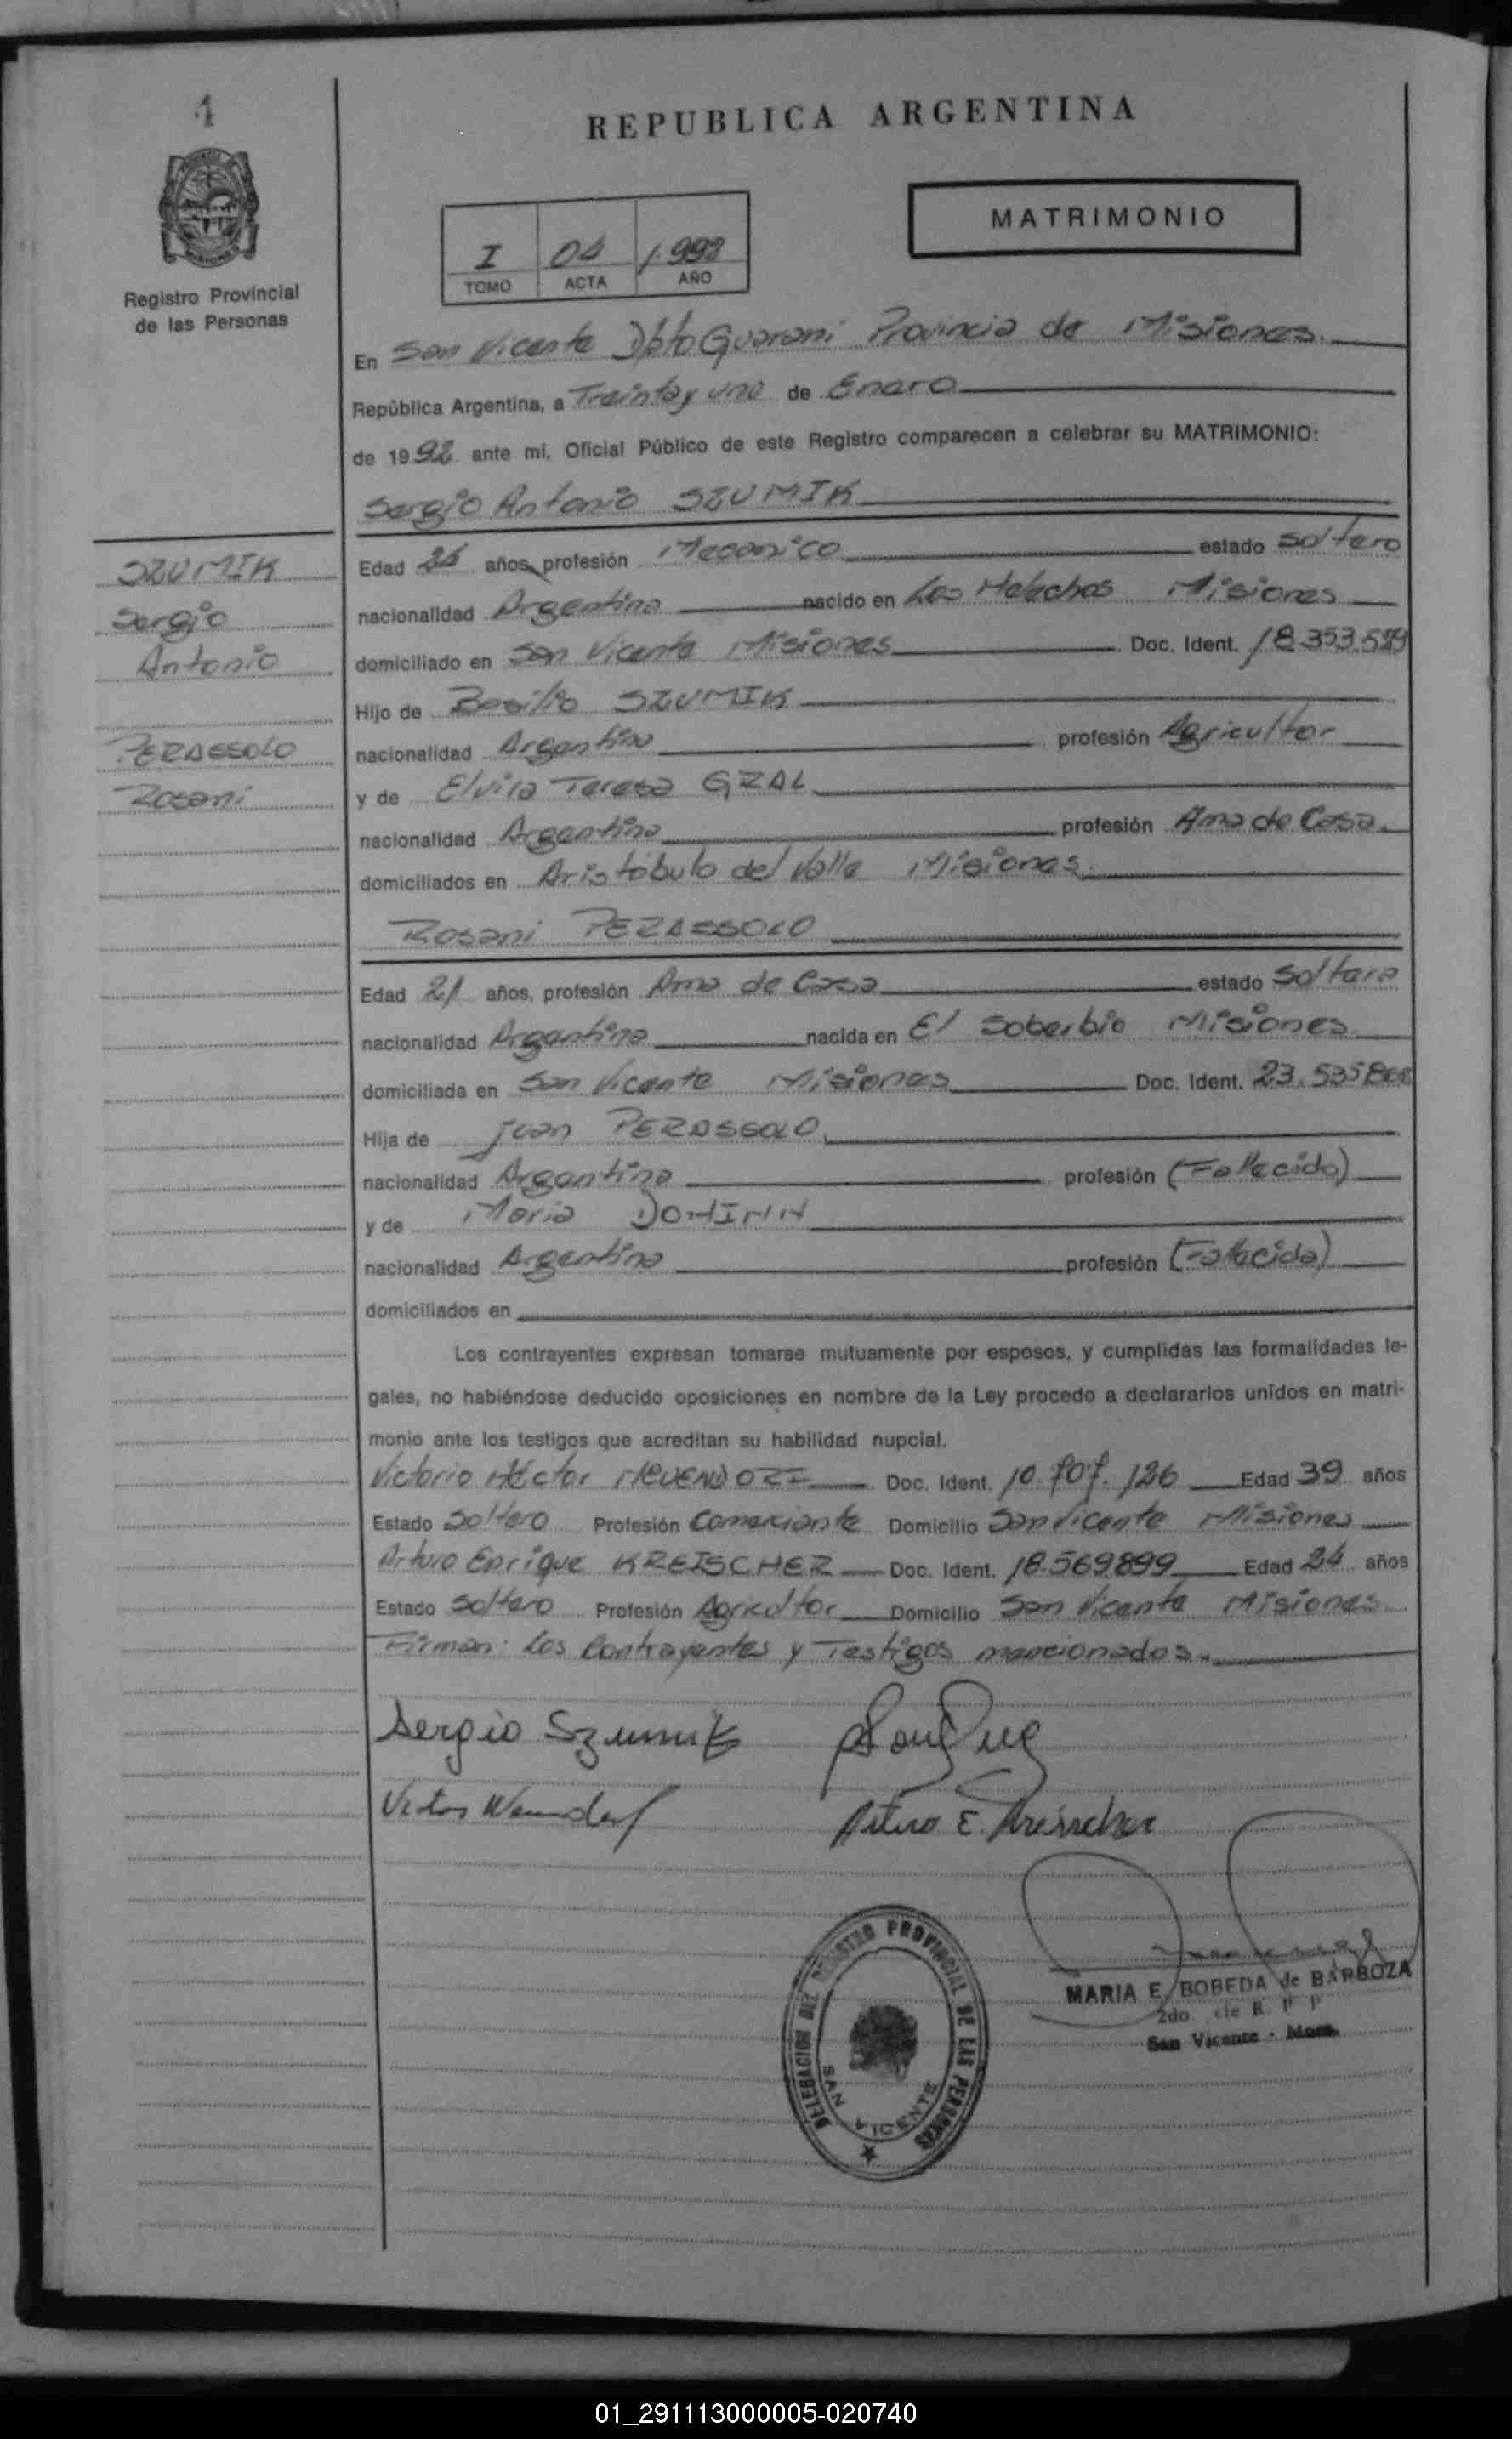 1
REPUBLICA ARGENTINA
MATRIMONIO
I 04 1.992
TOMO ACTA AÑO
Registro Provincial
de las Personas
En San Vicente Dpto Guarani Provincia de Misiones
República Argentina, a Treinta y uno de Enero
de 1992 ante mi, Oficial Público de este Registro comparecen a celebrar su MATRIMONIO:
Sergio Antonio SZUMIK
SZUMIK
Sergio
Antonio
PERASSOLO
Rosani
Edad años, profesión Mecanico estado Soltero
nacionalidad Argentina nacido en Los Helechos Misiones
domiciliado en San Vicente Misiones Doc. Ident. 18.353.529
Hijo de Basilio SZUMIK
nacionalidad Argentina profesión Agricultor
y de Elvira Teresa GRAL
nacionalidad Argentina profesión Ama de Casa.
domiciliados en Aristóbulo del Valle Misiones.
Rosani PERASSOLO
Edad 21 años, profesión Ama de Casa estado Soltera
nacionalidad Argentina nacida en El Soberbio Misiones
domiciliada en San Vicente Misiones Doc. Ident. 23.535
Hija de Juan PERASSOLO
nacionalidad Argentina profesión (Fallecido)
y de Maria
nacionalidad Argentina profesión (Fallecida)
domiciliados en
Los contrayentes expresan tomarse mutuamente por esposos, y cumplidas las formalidades le-
gales, no habiéndose deducido oposiciones en nombre de la Ley procedo a declararlos unidos en matri-
monio ante los testigos que acreditan su habilidad nupcial.
Victorio Héctor Doc. Ident. 10.707.126 Edad 39 años
Estado Soltero Profesión Comerciante Domicilio San Vicente Misiones
Arturo Enrique KREISCHER Doc. Ident. 18.569899 Edad 24 años
Estado Soltero Profesión Agricultor Domicilio San Vicente Misiones
Firman: Los Contrayentes y Testigos mencionados.
Sergio Szumik
Arturo E. Kreischer
DELEGACION DEL REGISTRO PROVINCIAL DE LAS PERSONAS
SAN VICENTE
MARIA E. BOBEDA de BARBOZA
2do
San Vicente - Mnes.
01_291113000005-020740